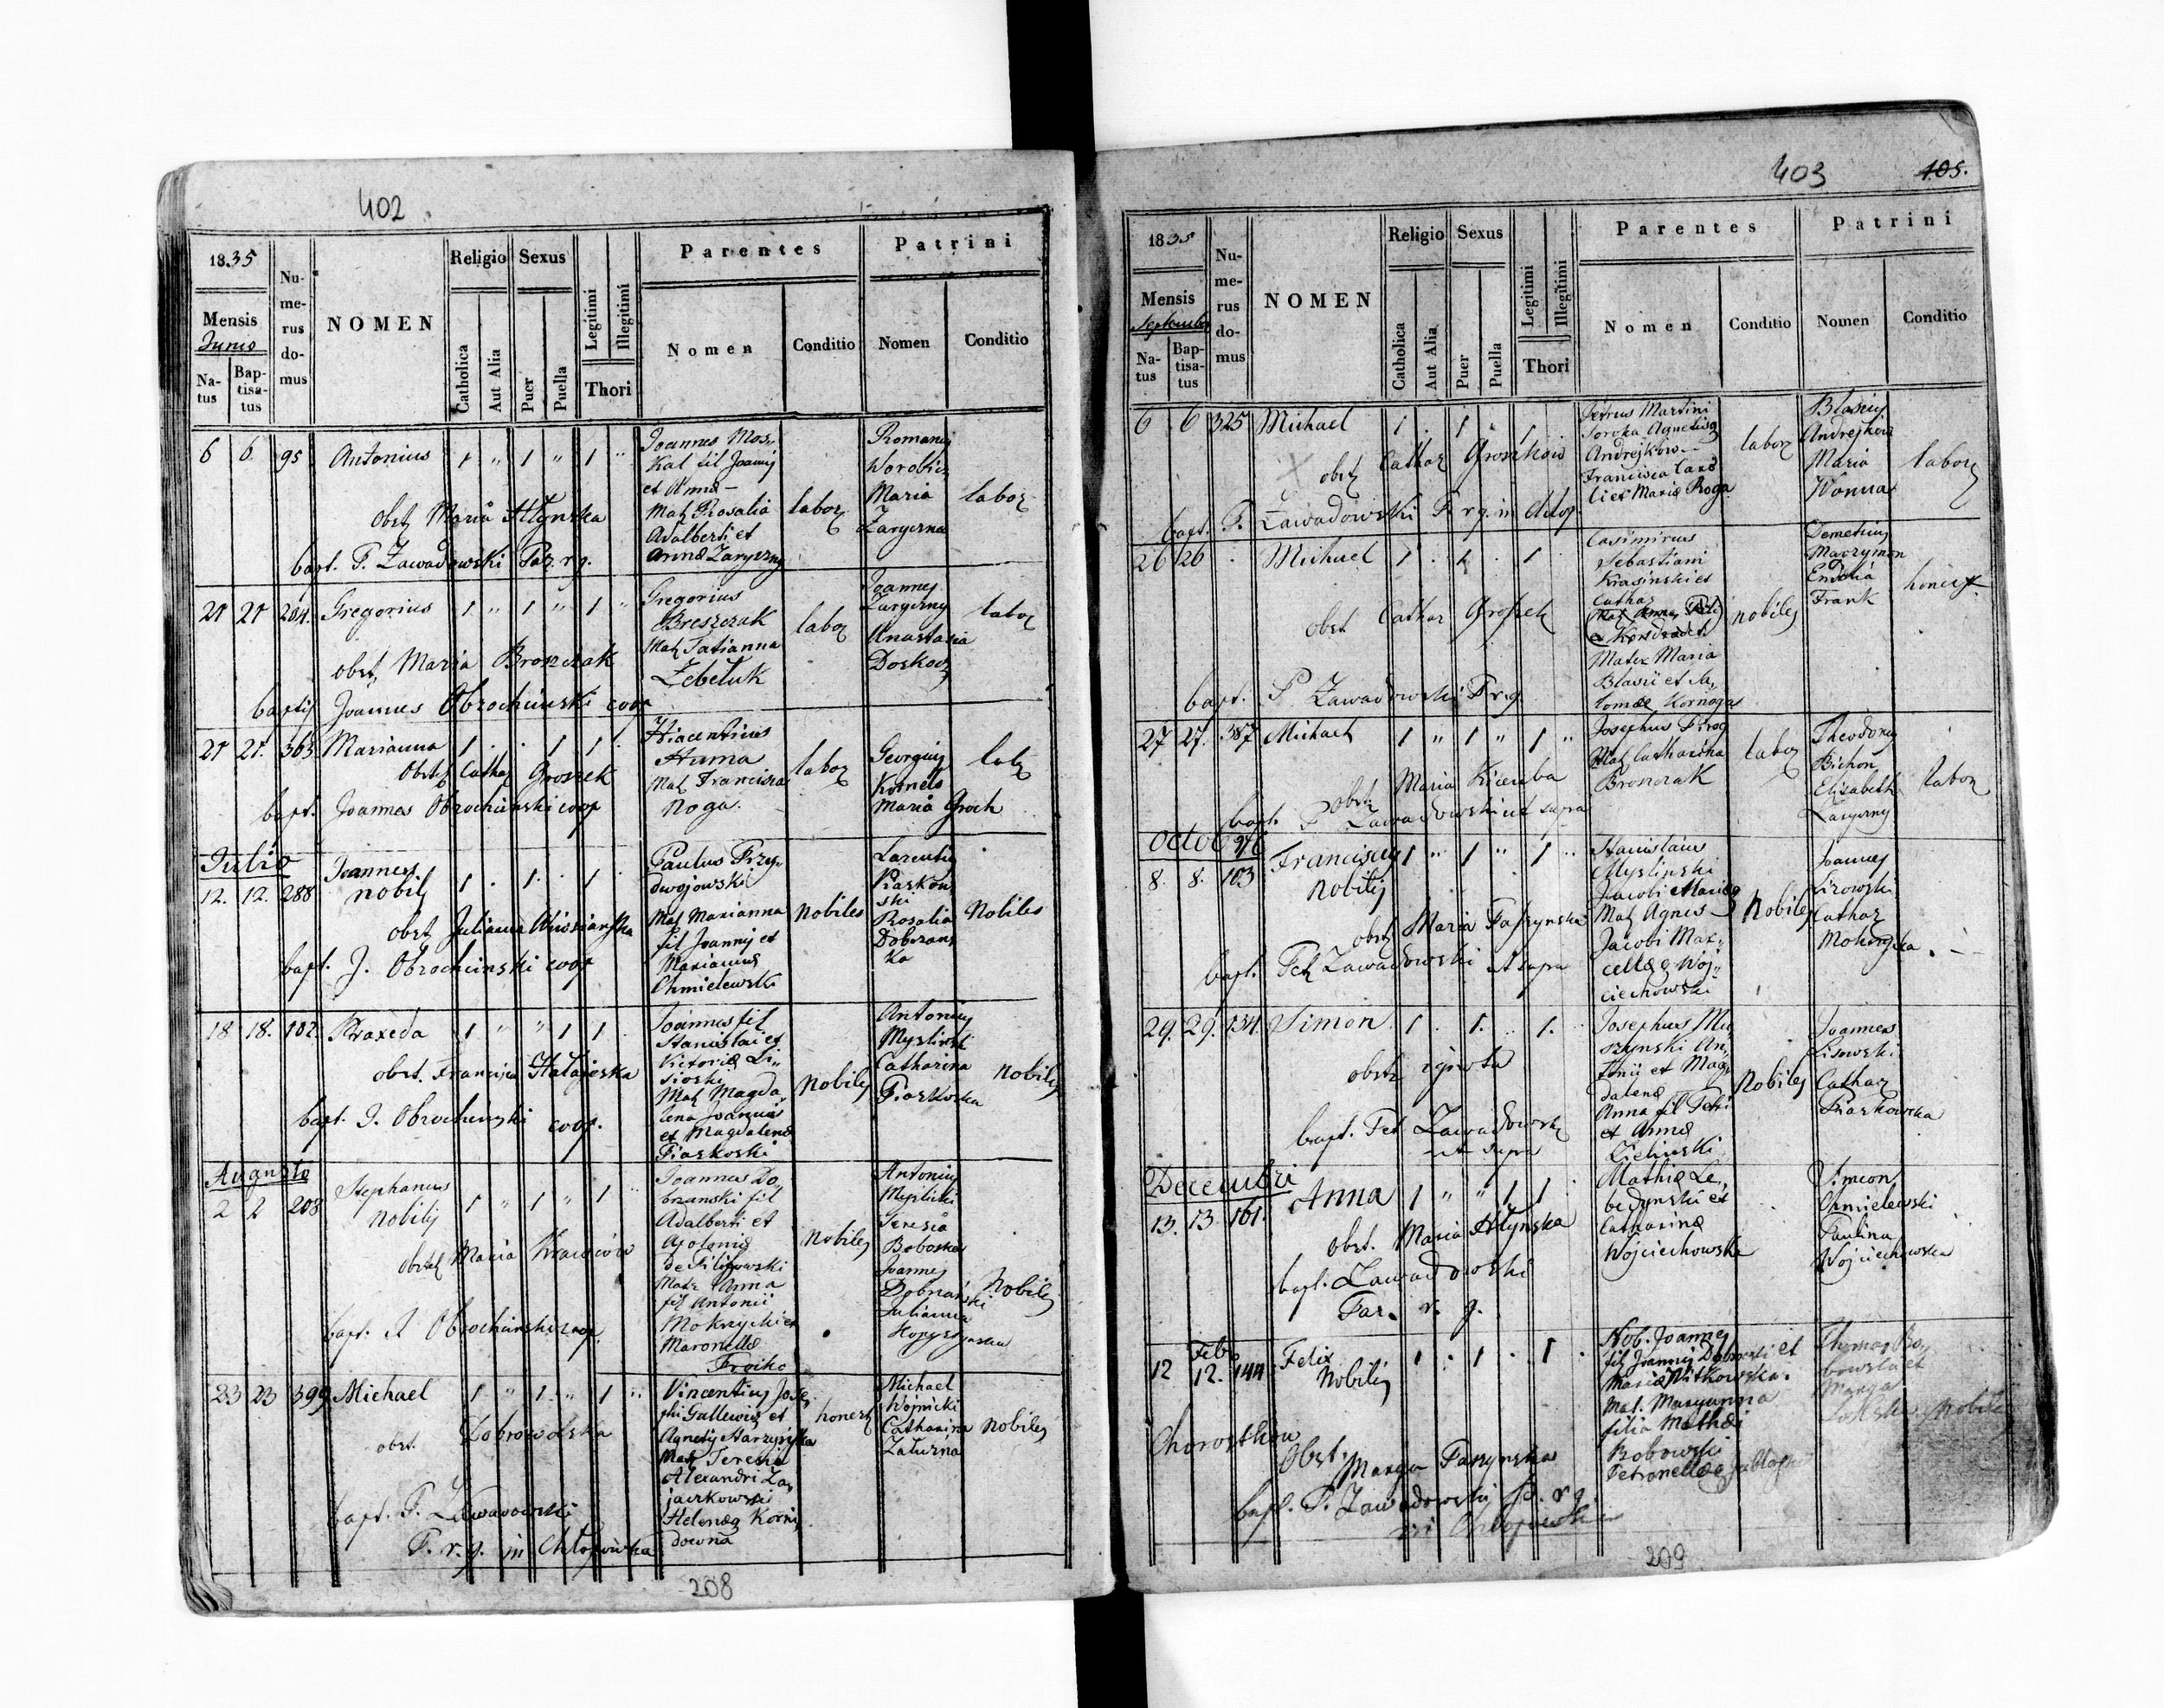 402
1835
Mensis
Junio
Natus
Baptisatus
Numerus domus
NOMEN
Religio
Catholica
Aut Alia
Sexus
Puer
Puella
Legitimi
Illegitimi
Thori
Parentes
Nomen
Conditio
Patrini
Nomen
Conditio
6 6 95 Antonius 1 " 1 " 1 "
obst Maria Hłynska
bapt. P. Zawadowski Par. r. g.
Joannes Mos,
kal fil Joannis
et Anna
Mat Rosalia
Adalberti et
Anna Zaryczny
labor
Romanus
Worobiec
Maria
Zaryczna
labor
21 21 204. Gregorius 1 " 1 " 1 "
obst, Maria Broszczak
baptis Joannes Obrochinski coop
Gregorius
Breszczak
Mat Tatianna
Zebetuk
labor
Joannes
Zaryczny
Anastasia
Doskocz
labor
21 21. 363 Marianna 1 . . 1 1
Obstet Cathar Groszek
bapt. Joannes Obrochinski coop
Hiacentius
Huma
Mat Francisca
Noga.
labor
Georgius
Kornelo
Maria Groch
labor
Julio
12. 12. 288 Joannes
nobilis
1 . 1. . 1 .
obst Julianna Wiszianska
bapt. J. Obrochinski coop
Paulus Przy,
dwojowski
Mat Marianna
fil Joannis et
Marianna
Chmielewski
Nobiles
Laurentius
Piaskow
ski
Rosalia
Dobrzans
ka
Nobiles
18 18. 102. Praxeda 1 " " 1 1
obst. Francisca Hatajoska
bapt. J. Obrochinski coop.
Joannes fil
Stanislai et
Victoria Li,,
sioski
Mat Magda,
lena Joannis
et Magdalena
Piaskoski
Nobiles
Antonius
Myslinski
Catharina
Piaskoska
nobiles
Augusto
2 2 208 Stephanus
Nobilis
1 " 1 " 1
obstet Maria Krawciow
bapt. J Obrochinski coop.
Joannes Do,
brzanski fil
Adalberti et
Apolonia
de Filipowski
Mater Anna
fil Antonii
Mokrzycki et
Maronella
Froiko
Nobiles
Antonius
Myslicki
Teresia
Boboska
Joannes
Dobrianski
Julianna
Kopystynska
Nobiles
23 23 399 Michael 1 " 1. " 1 "
obst. Dobrowolska
bapt. P. Zawadowski
P. r. g. in Chłopówka
Vincentius Jose,
phi Gallewicz et
Agnetis Starzynska
Mat Teresia
Alexandri Za,
jaczkowski
Helena Korni,
downa
honest
Michael
Wojnicki
Catharina
Zaturna
Nobiles
208
403
105.
1835
Mensis
September
Natus
Baptisatus
Numerus domus
NOMEN
Religio
Catholica
Aut Alia
Sexus
Puer
Puella
Legitimi
Illegitimi
Thori
Parentes
Nomen
Conditio
Patrini
Nomen
Conditio
6 6 325 Michael 1 . 1 " 1 .
obst Cathar Groszkow
bapt. P. Zawadowski P. r. g. in Chłop
Petrus Martini
Soroka Agnetisq
Andrejkow
Francisca Caro
li et Maria Roga
labor
Blasius
Andrejkow
Maria
Wonna
labor
26 26 . Michael 1 . 1 . 1
obst Cathar Groszek
bapt. P Zawadowski P r. g.
Casimirus
Sebastiani
Krasinski et
Cathar
Mater Maria
Blasii et Sa,
lomae Kornoga
nobiles
Demetrius
Maxzymow
Emilia
Frank
honest
27 27. 387 Michael 1 " 1 " 1 "
obst Maria Kiczuba
bapt. P Zawadowski ut supra
Josephus Pirog
Mat Catharina
Bronczak
labor
Theodorus
Bichon
Elisabeth
Zaryczny
labor
Octobri
8. 8. 103 Franciscus
Nobilis
1 " 1 " 1 "
obst Maria Paszynska
bapt. Pet Zawadowski ut supra
Stanislaus
Myslinski
Jacobi Mariaq
Mat Agnes
Jacobi Mar,,
cellaq Woj,,
ciechowski
Nobiles
Joannes
Lisowski
Cathar
Mokrzycka
29. 29. 134. Simon. 1 . 1. .. 1. ..
obst ignota
bapt. Pet Zawadowski
ut supra
Josephus Mu
szynski An,
tonii et Mag,
dalena
Anna fil Petri
et Anna
Zielinski
Nobiles
Joannes
Lisowski
Cathar
Piaskowska
Decembri
13. 13. 161. Anna 1 " " 1 1
obst. Maria Hłynska
bapt. Zawadowski
Par. r. g.
Mathia Le,,
bedynski et
Catharina
Wojciechowska
Simeon
Chmielewski
Paulina
Wojciechowska
Feb
12 12. 144 Felix
Nobilis
1 . 1 . 1 .
Chorostkow
Obst. Marya Paszynska
bapt. P. Zawadowski P. r. g.
in Chłopowka
Nob. Joannes
fil Joannis Dobrowski et
Maria Witkowska.
Mat. Maryanna
filia Mathei
Bobowski
Petronellae
Thomas Bo,
bowski et
Marya
Nobiles
209